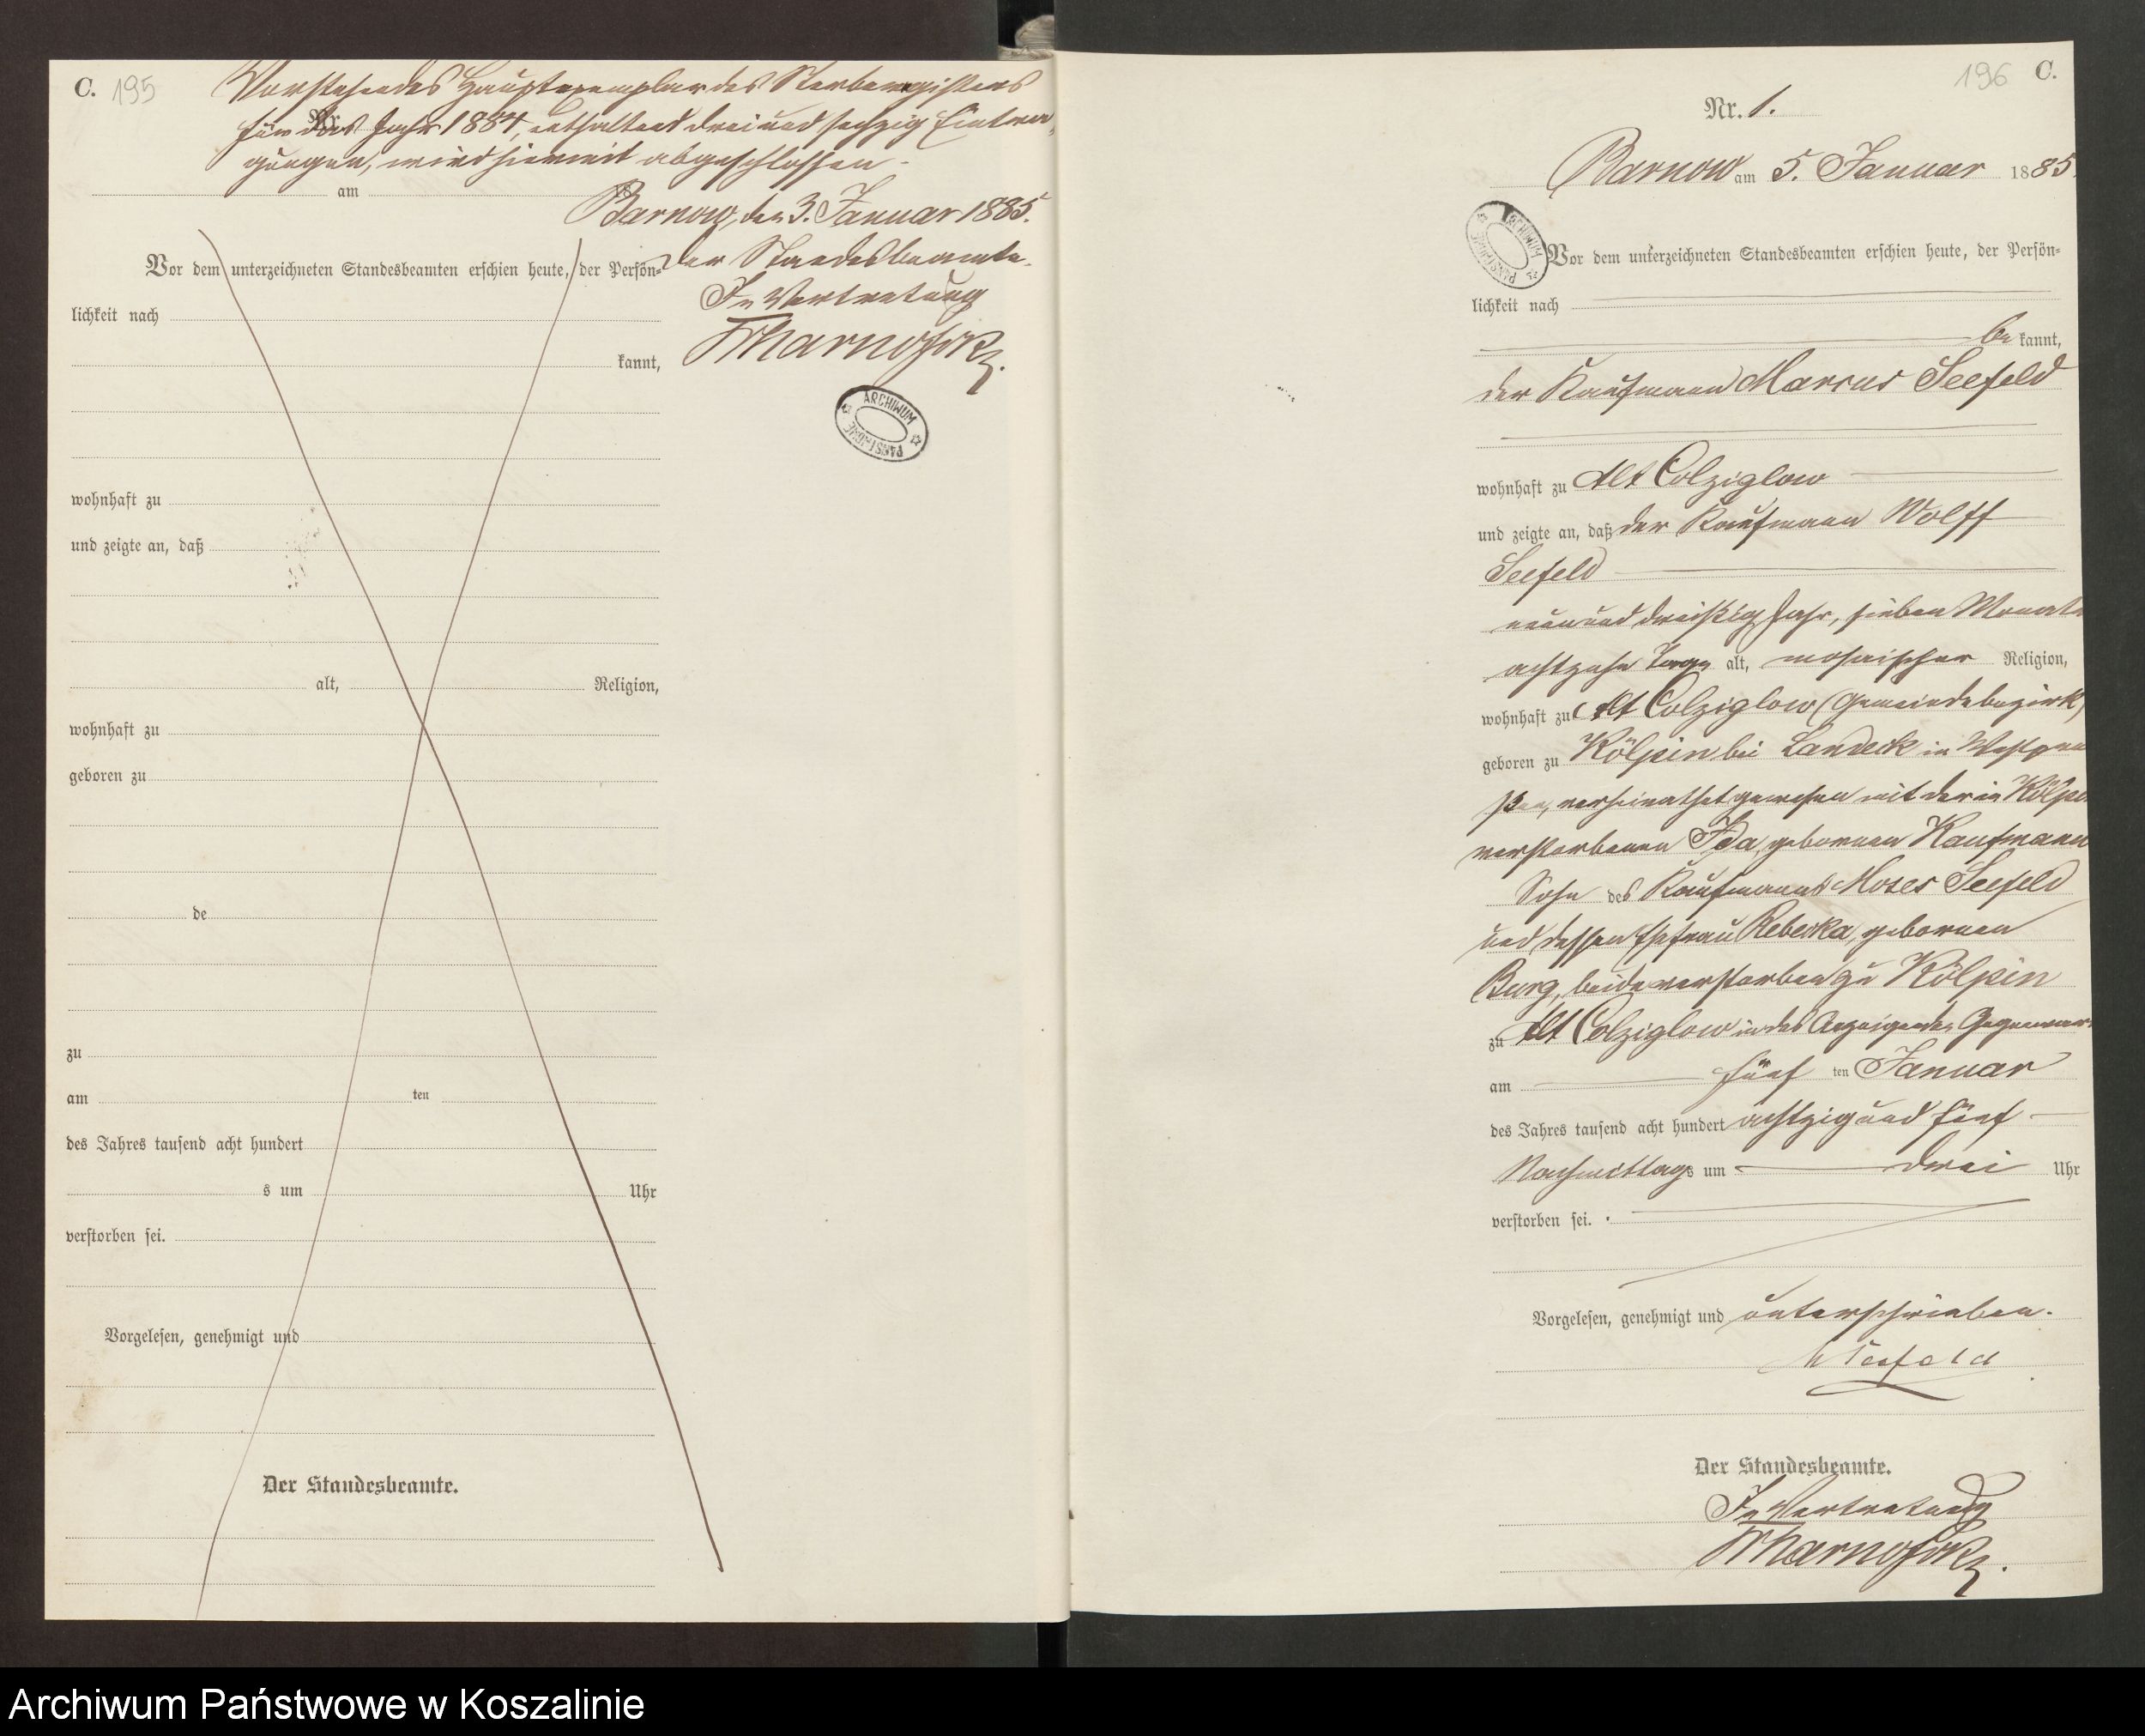 C. 195
Vorstehendes Hauptexemplar des Sterberegisters
für das Jahr 1884, enthaltend drei und sechzig Eintra-
gungen, wird hiermit abgeschlossen.
am 18
Barnow, den 3. Januar 1885.
Der Standesbeamte.
In Vertretung
ARCHIWUM PAŃSTWOWE
Vor dem unterzeichneten Standesbeamten erschien heute, der Persön-
lichkeit nach
kannt,
wohnhaft zu
und zeigte an, daß
alt, Religion,
wohnhaft zu
geboren zu
de
zu
am ten
des Jahres tausend acht hundert
s um Uhr
verstorben sei.
Vorgelesen, genehmigt und
Der Standesbeamte.
196 C.
Nr. 1.
Barnow am 5. Januar 1885.
ARCHIWUM PAŃSTWOWE
Vor dem unterzeichneten Standesbeamten erschien heute, der Persön-
lichkeit nach
be kannt,
der Kaufmann Marcus Seefeld
wohnhaft zu Alt Colziglow
und zeigte an, daß der Kaufmann Wolff
Seefeld
neun und dreißig Jahr, sieben Monate
achtzehn Tage alt, mosaischer Religion,
wohnhaft zu Alt Colziglow (Gemeindebezirk)
geboren zu Kölpin bei Landeck in Westpreu
ßen, verheirathet gewesen mit der in Kölpin
verstorbenen Ida, gebornen Kaufmann
Sohn des Kaufmanns Moses Seefeld
und dessen Ehefrau Rebecka, gebornen
Burg, beide verstorben zu Kölpin
zu Alt Colziglow in des Anzeigenden Gegenwart
am fünf ten Januar
des Jahres tausend acht hundert achtzig und fünf
Nachmittags um drei Uhr
verstorben sei.
Vorgelesen, genehmigt und unterschrieben.
M Seefeld
Der Standesbeamte.
In Vertretung
Archiwum Państwowe w Koszalinie